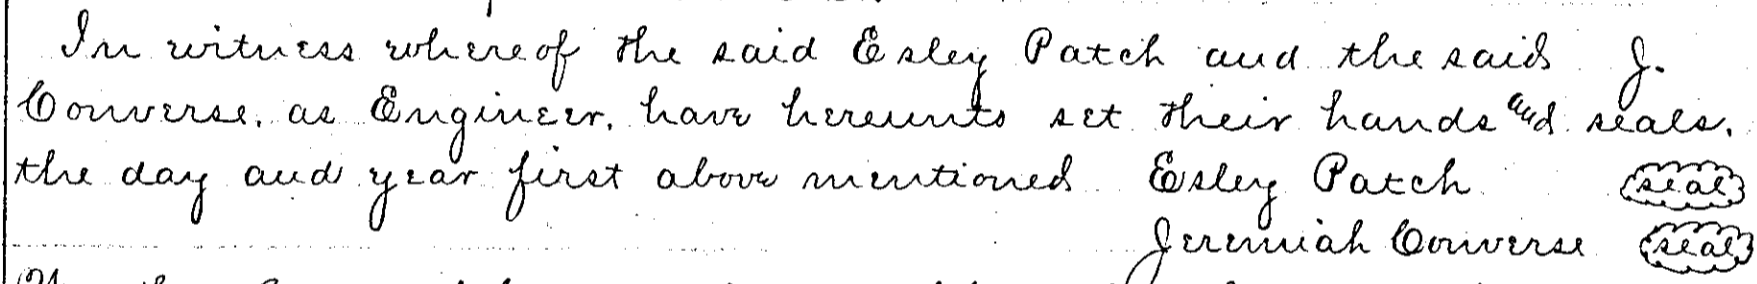 In witness whereof the said Esley Patch and the said J.
Converse, as Engineer, have hereunto set their hands and seals,
the day and year first above mentioned Esley Patch (seal)
Jeremiah Converse (seal)